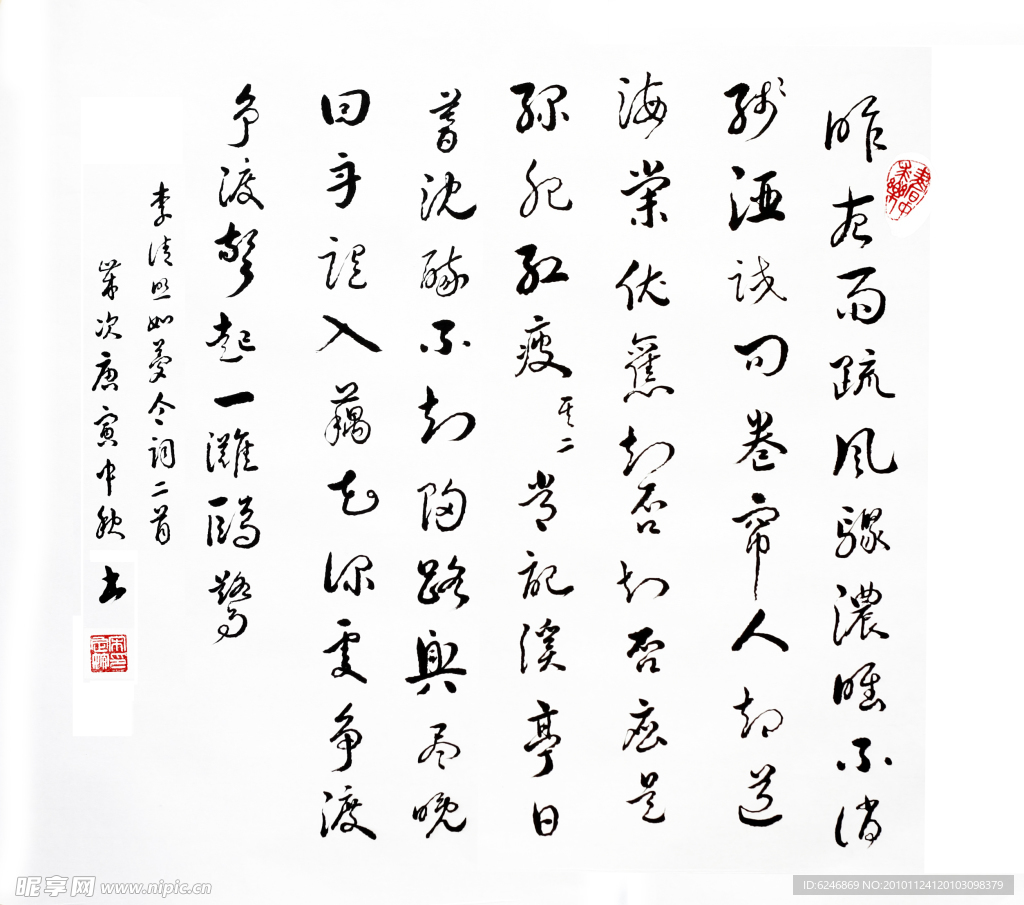 昨夜雨疏风骤濃睡不消
残酒试问卷帘人却道
海棠依舊知否知否应是
绿肥红瘦 其二 常记溪亭日
暮沈醉不知归路興尽晚
回舟误入藕花深处争渡
争渡驚起一灘鷗鷺
李清照如梦令词二首
岁次庚寅中秋 书
昵享网 www.nipic.cn
ID:6246869 NO:20101124120103098379